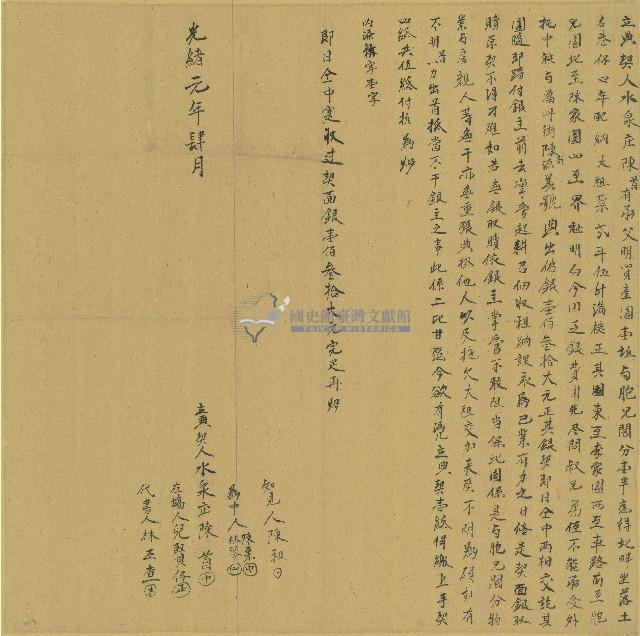 立典契人水泉庄陳首有承父明買產園壹坵与胞兄鬮分壹半應得北畔坐落土
名巷仔口年配納大租粟弍斗伍升滿棪正其園東至李家園西至車路南至胞
兄園北至陳家園四至界址明白今因乏銀費用先尽問叔兄弟侄不能承受外
托中就与萬丹街陳義號典出佛銀壹佰叁拾大元正其銀契即日仝中兩相交訖其
園隨即踏付銀主前去掌管起耕召佃收租納課永為己業有力之日備足契面銀取
贖原契不得刁難如若無銀取贖依銀主掌管不敢阻当保此園係是与胞兄鬮分物
業与房親人等無干亦無重張典掛他人以及拖欠大租交加來歷不明為碍如有
不明首一力出首抵當不干銀主之事此係二比甘愿今欲有憑立典契壹紙併繳上手契
四紙共伍紙付执為炤
內添字壹字
即日仝中寔收过契面銀壹佰叁拾大元完足再炤
光緒元年肆月
知見人陳和
為中人陳栗
林
立典契人水泉庄陳首
在場人兒賢仔
代書人林丕
國史館臺灣文獻館
TAIWAN HISTORICA